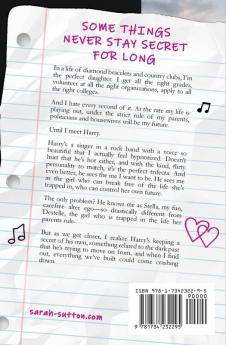 SOME THINGS
NEVER STAY SECRET
FOR LONG
In a life of diamond bracelets and country clubs, I'm
the perfect daughter. I get all the right grades,
volunteer at all the right organizations, apply to all
the right colleges.
And I hate every second of it. At the rate my life is
playing out, under the strict rule of my parents,
politicians and housewives will be my future.
Until I meet Harry.
Harry's a singer in a rock band with a voice so
beautiful that I actually feel hypnotized. Doesn't
hurt that he's hot either, and with the kind, flirty
personality to match, it's the perfect trifecta. And
even better, he sees the me I want to be. He sees me
as the girl who can break free of the life she's
trapped in, who can control her own future.
The only problem? He knows me as Stella, my fun,
carefree alter ego—so drastically different from
Destelle, the girl who is trapped in the life her
parents rule.
But as we get closer, I realize Harry's keeping a
secret of his own, something related to the dark past
that he's trying to move on from, and when I find
out, everything we've built could come crashing
down.
sarah-sutton.com
90000